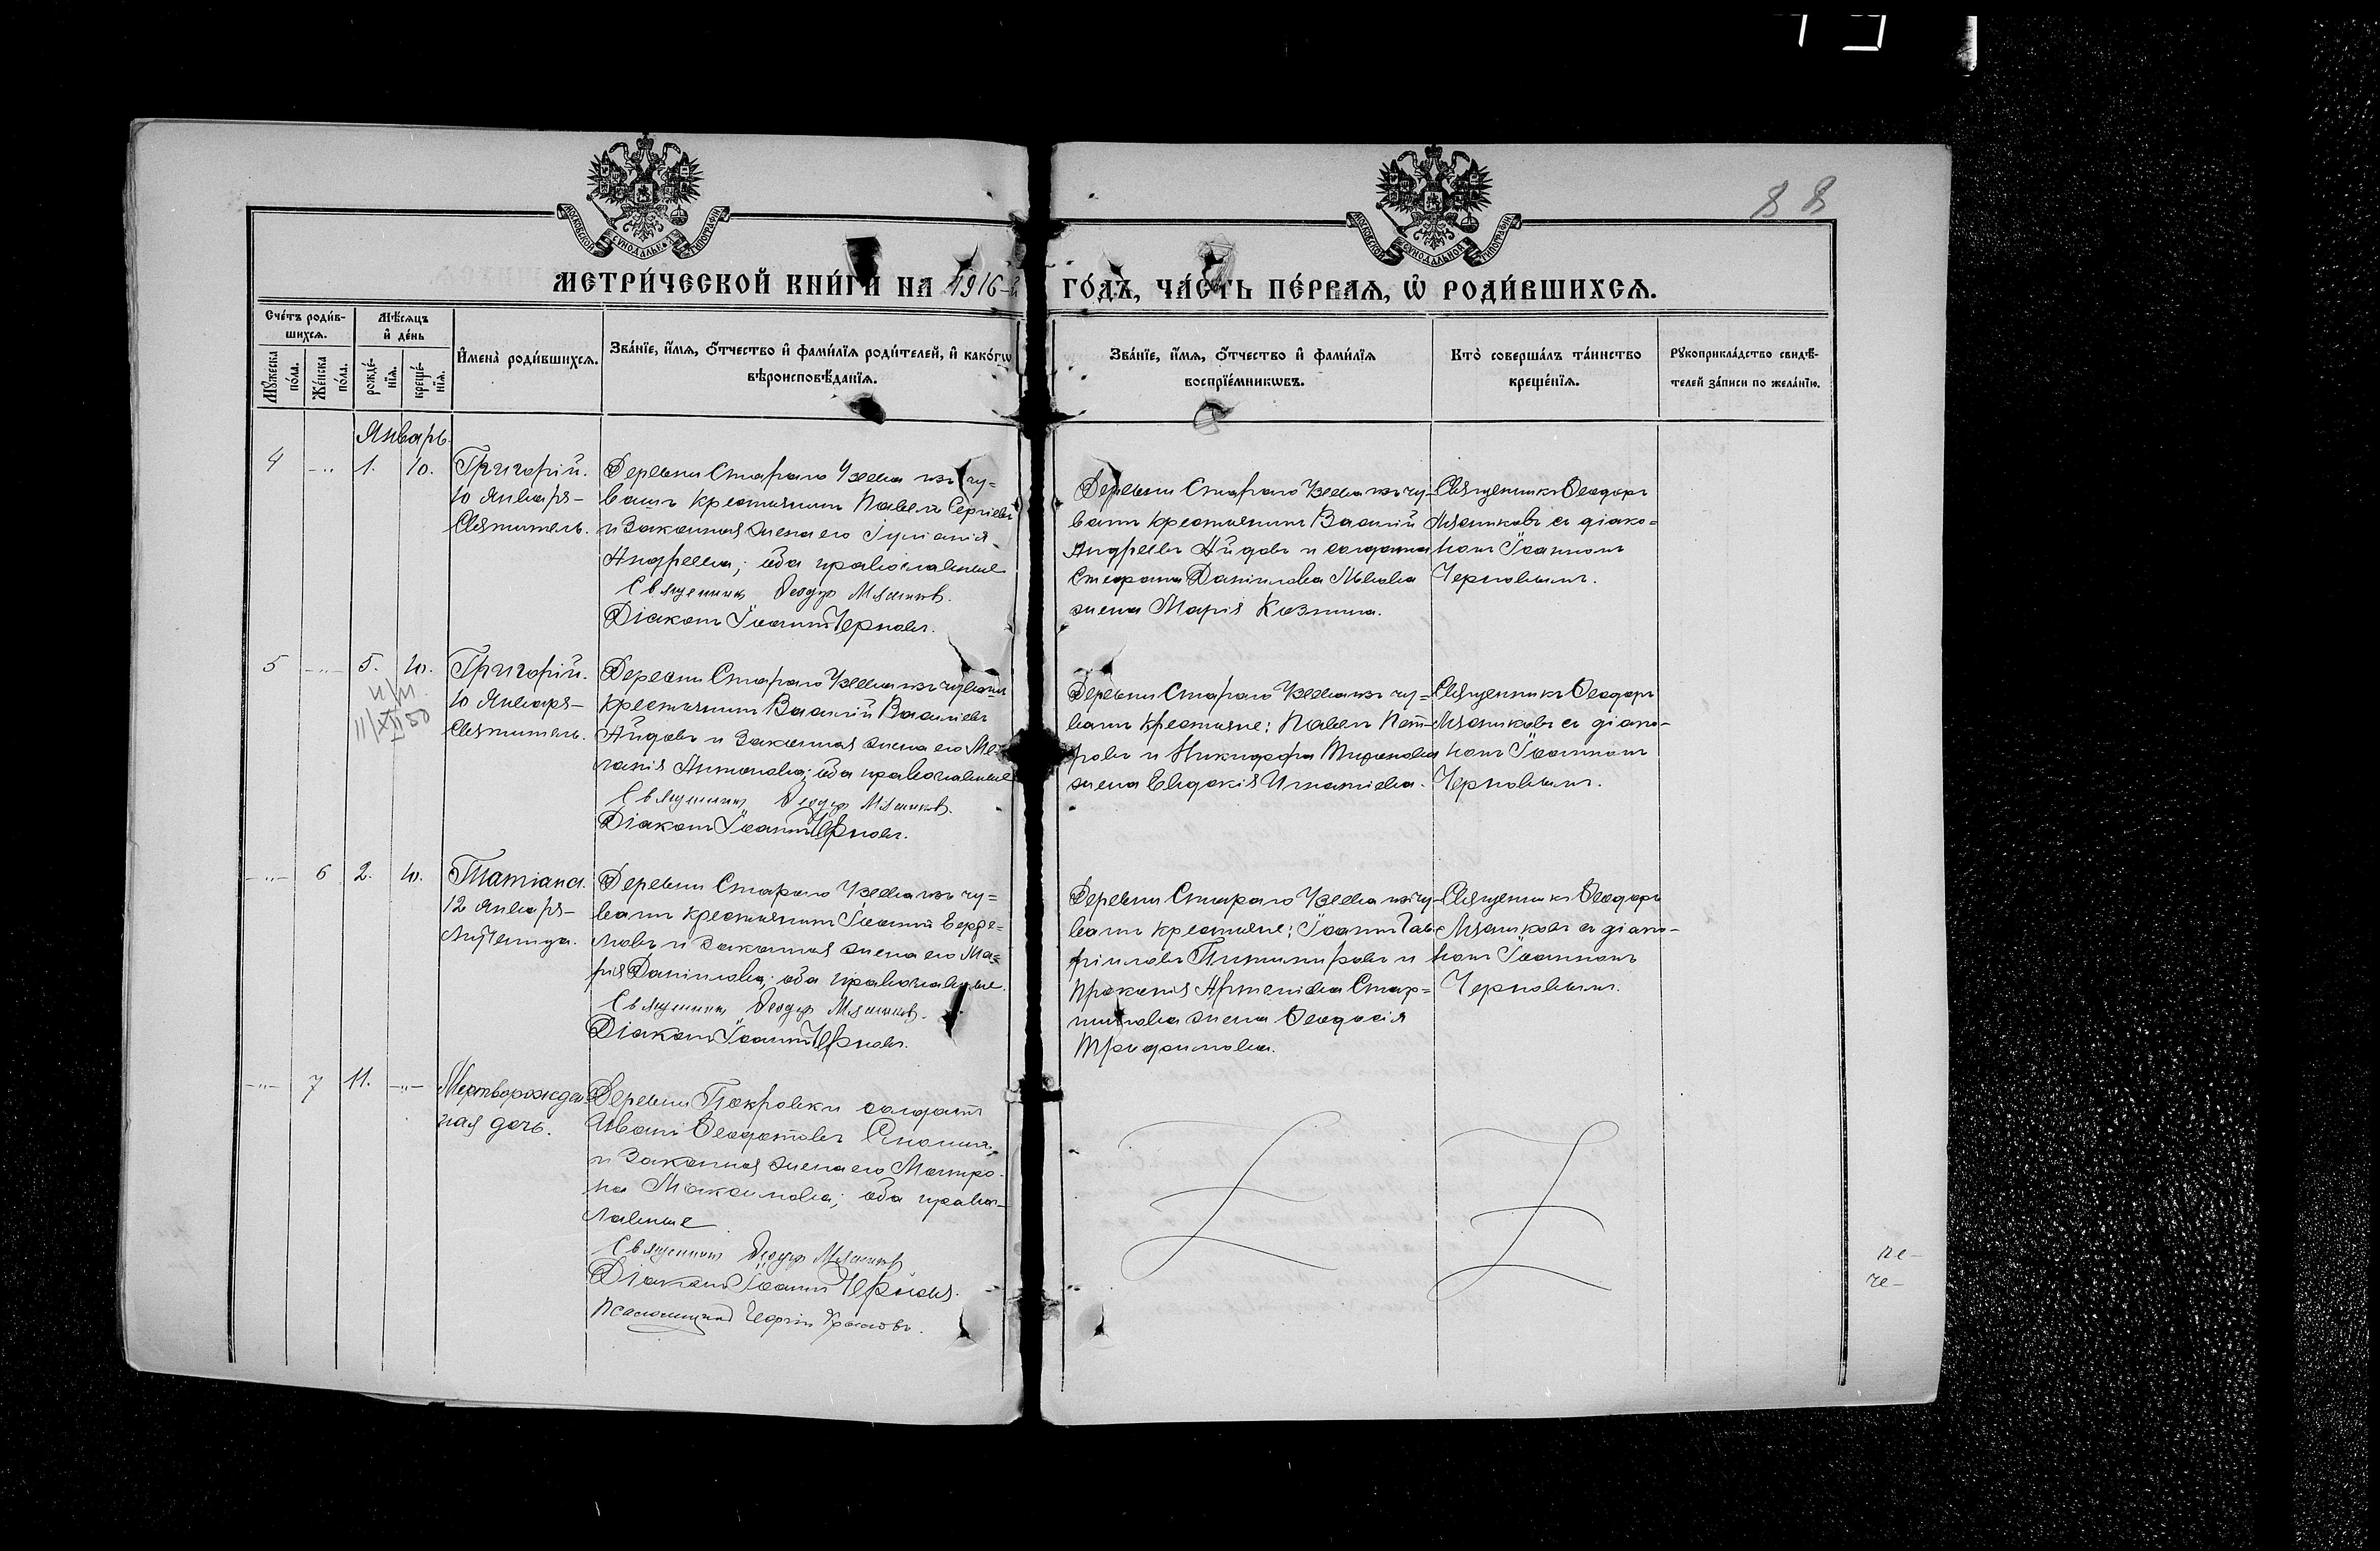 88
МОСКОВСКОЙ СѴНОДАЛЬНОЙ ТИПОГРАФІИ
МОСКОВСКОЙ СѴНОДАЛЬНОЙ ТИПОГРАФІИ
МЕТРИ́ЧЕСКОЙ КНИ́ГИ НА 1916-й ГО́ДЪ, ЧА́СТЬ ПЕ́РВАЯ, Ѡ РОДИ́ВШИХСЯ.
Сче́тъ роди́в-
шихся.
Мѣ́сяцъ
и҆ де́нь
Мꙋ́жеска по́ла.
Же́нска по́ла.
рожде́-
нїя.
креще́-
нїя.
И҆мена̀ роди́вшихся.
Зва́нїе, и҆́мя, ѻ҆́тчество и҆ фами́лїя роди́телей, и҆ како́гѡ
вѣроисповѣ́данїя.
Зва́нїе, и҆́мя, ѻ҆́тчество и҆ фами́лїя
воспрїе́мникѡвъ.
Кто̀ соверша́лъ та́инство
креще́нїя.
Рꙋкоприкла́дство свидѣ́-
телей за́писи по жела́нїю.
Январь.
4 -"- 1. 10.
Григорій.
10 Января-
Святитель.
Деревни Стараго Узеева изъ чу=
вашъ крестьянинъ Павелъ Сергіевъ
и законная жена его Іуліанія
Андреева; оба православные
Священникъ Ѳеодоръ Мясников.
Діаконъ Іоаннъ Черновъ.
Деревни Стараго Узеева изъ чу-
вашъ крестьянинъ Василій
Андреевъ Айдовъ и солдата
Стефана Данилова Мѣкова
жена Марія Козмина.
Священникъ Ѳеодоръ
Мясниковъ съ діако=
номъ Іоанномъ
Черновымъ.
5 -"- 5. 10.
Григорій.
10 Января-
Святитель.
Деревни Стараго Узеева изъ чувашъ
крестьянинъ Василій Васильевъ
Айдовъ и законная жена его Ме-
ланія Антонова; оба православные
Священникъ Ѳеодоръ Мясников.
Діаконъ Іоаннъ Черновъ.
Деревни Стараго Узеева изъ чу=
вашъ крестьяне: Павелъ Пет-
ровъ и Никифора Миронова
жена Евдокія Игнатіева.
Священникъ Ѳеодоръ
Мясниковъ съ діако-
номъ Іоанномъ
Черновымъ.
-"- 6 2. 10.
Татіана.
12 Января-
Мученица.
Деревни Стараго Узеева изъ чу=
вашъ крестьянинъ Іоаннъ
и законная жена его Ма=
рія Данилова; оба православные.
Священникъ Ѳеодоръ Мясников.
Діаконъ Іоаннъ Черновъ.
Деревни Стараго Узеева изъ чу-
вашъ крестьяне: Іоаннъ Гав-
ріиловъ и
Прокопія Артеміева
жена Ѳеодосія
Трифонова.
Священникъ Ѳеодоръ
Мясниковъ съ діако-
номъ Іоанномъ
Черновымъ.
-"- 7 11. -"-
Мертворожден-
ная дочь.
Деревни Покровки солдатъ
Иванъ Ѳеодотовъ
и законная жена его Матро-
на Максимова; оба правос-
лавные
Священникъ Ѳеодоръ Мясников
Діаконъ Іоаннъ Черновъ.
Псаломщикъ Георгій
пе-
че-